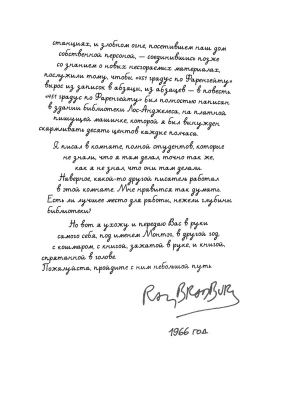 станциях, и злобном огне, посетившем наш дом
собственной персоной, — соединившись позже
со знанием о новых несгораемых материалах,
послужили тому, чтобы «451 градус по Фаренгейту»
вырос из записок в абзацы, из абзацев — в повесть.
«451 градус по Фаренгейту» был полностью написан
в здании библиотеки Лос-Анджелеса, на платной
пишущей машинке, которой я был вынужден
скармливать десять центов каждые полчаса.
Я писал в комнате, полной студентов, которые
не знали, что я там делал, точно так же,
как я не знал, что они там делали.
Наверное, какой-то другой писатель работал
в этой комнате. Мне нравится так думать.
Есть ли лучшее место для работы, нежели глубины
библиотеки?
Но вот я ухожу, и передаю Вас в руки
самого себя, под именем Монтэг, в другой год,
с кошмаром, с книгой, зажатой в руке, и книгой,
спрятанной в голове.
Пожалуйста, пройдите с ним небольшой путь.
RAY BRADBURY
1966 год